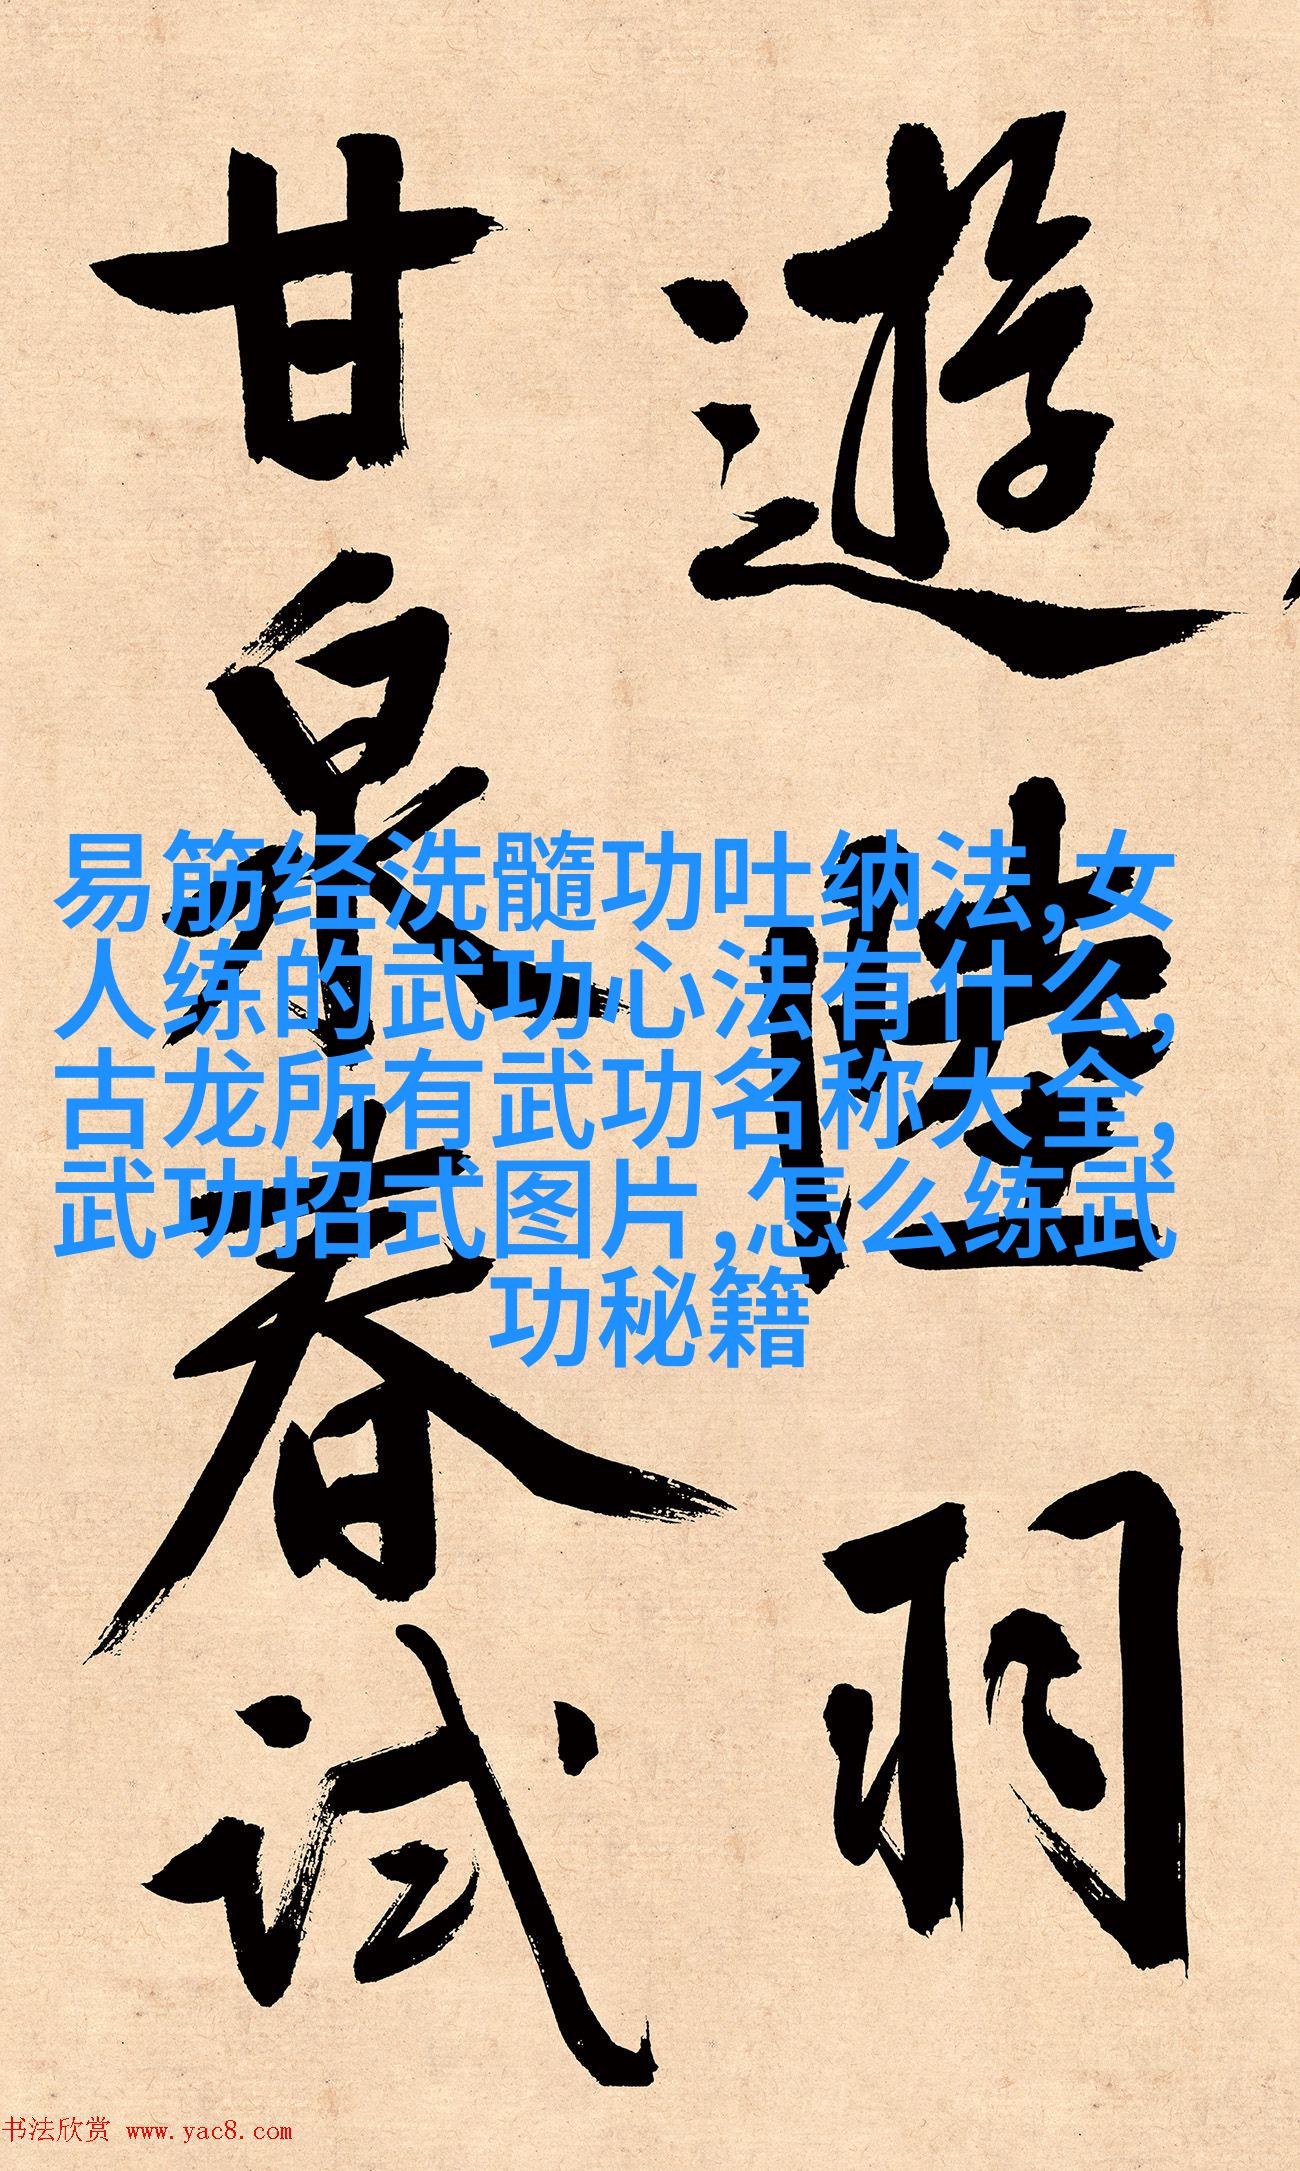 遊陸羽
甘泉春試
易筋经洗髓功吐纳法,女
人练的武功心法有什么,
古龙所有武功名称大全,
武功招式图片,怎么练武
功秘籍
书法欣赏 www.yac8.com